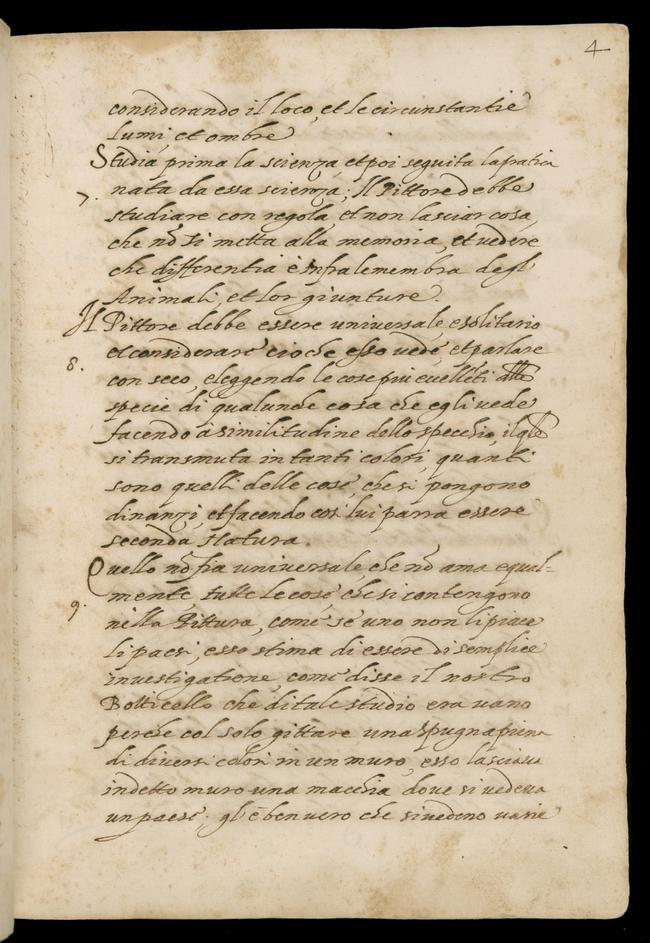 4
considerando il loco, et le circunstantie
lumi, et ombre
Studia prima la scienza, et poi seguita la pratica
7. nata da essa scienza; Il Pittore debbe
studiare con regola, et non lasciar cosa,
che nõ si metta alla memoria, et vedere
che differentia è infra le membra degl'
Animali, et lor giunture.
Il Pittore debbe essere universale, e solitario
8. et considerare cioche esso vede, et parlare
con seco, eleggendo le cose piu eccellẽti alle
specie di qualunche cosa che egli vede
facendo à similitudine dello specchio, il qle
si transmuta in tanti colori, quanti
sono quelli delle cose, che si pongono
dinanzi, et facendo cosi lui parra essere
seconda Natura.
Quello nõ fia universale, che nõ ama equal=
9. mente, tutte le cose che si contengono
nella Pittura, come se uno non li piace
li paesi, esso stima di essere di semplice
investigatione, come disse il nostro
Botticello che di tale studio era vano
perche col solo gittare una spugna piena
di diversi colori in un muro, esso lasciava
in detto muro una macchia dove si vedeva
un paese; gl'è ben vero che si vedeno varie